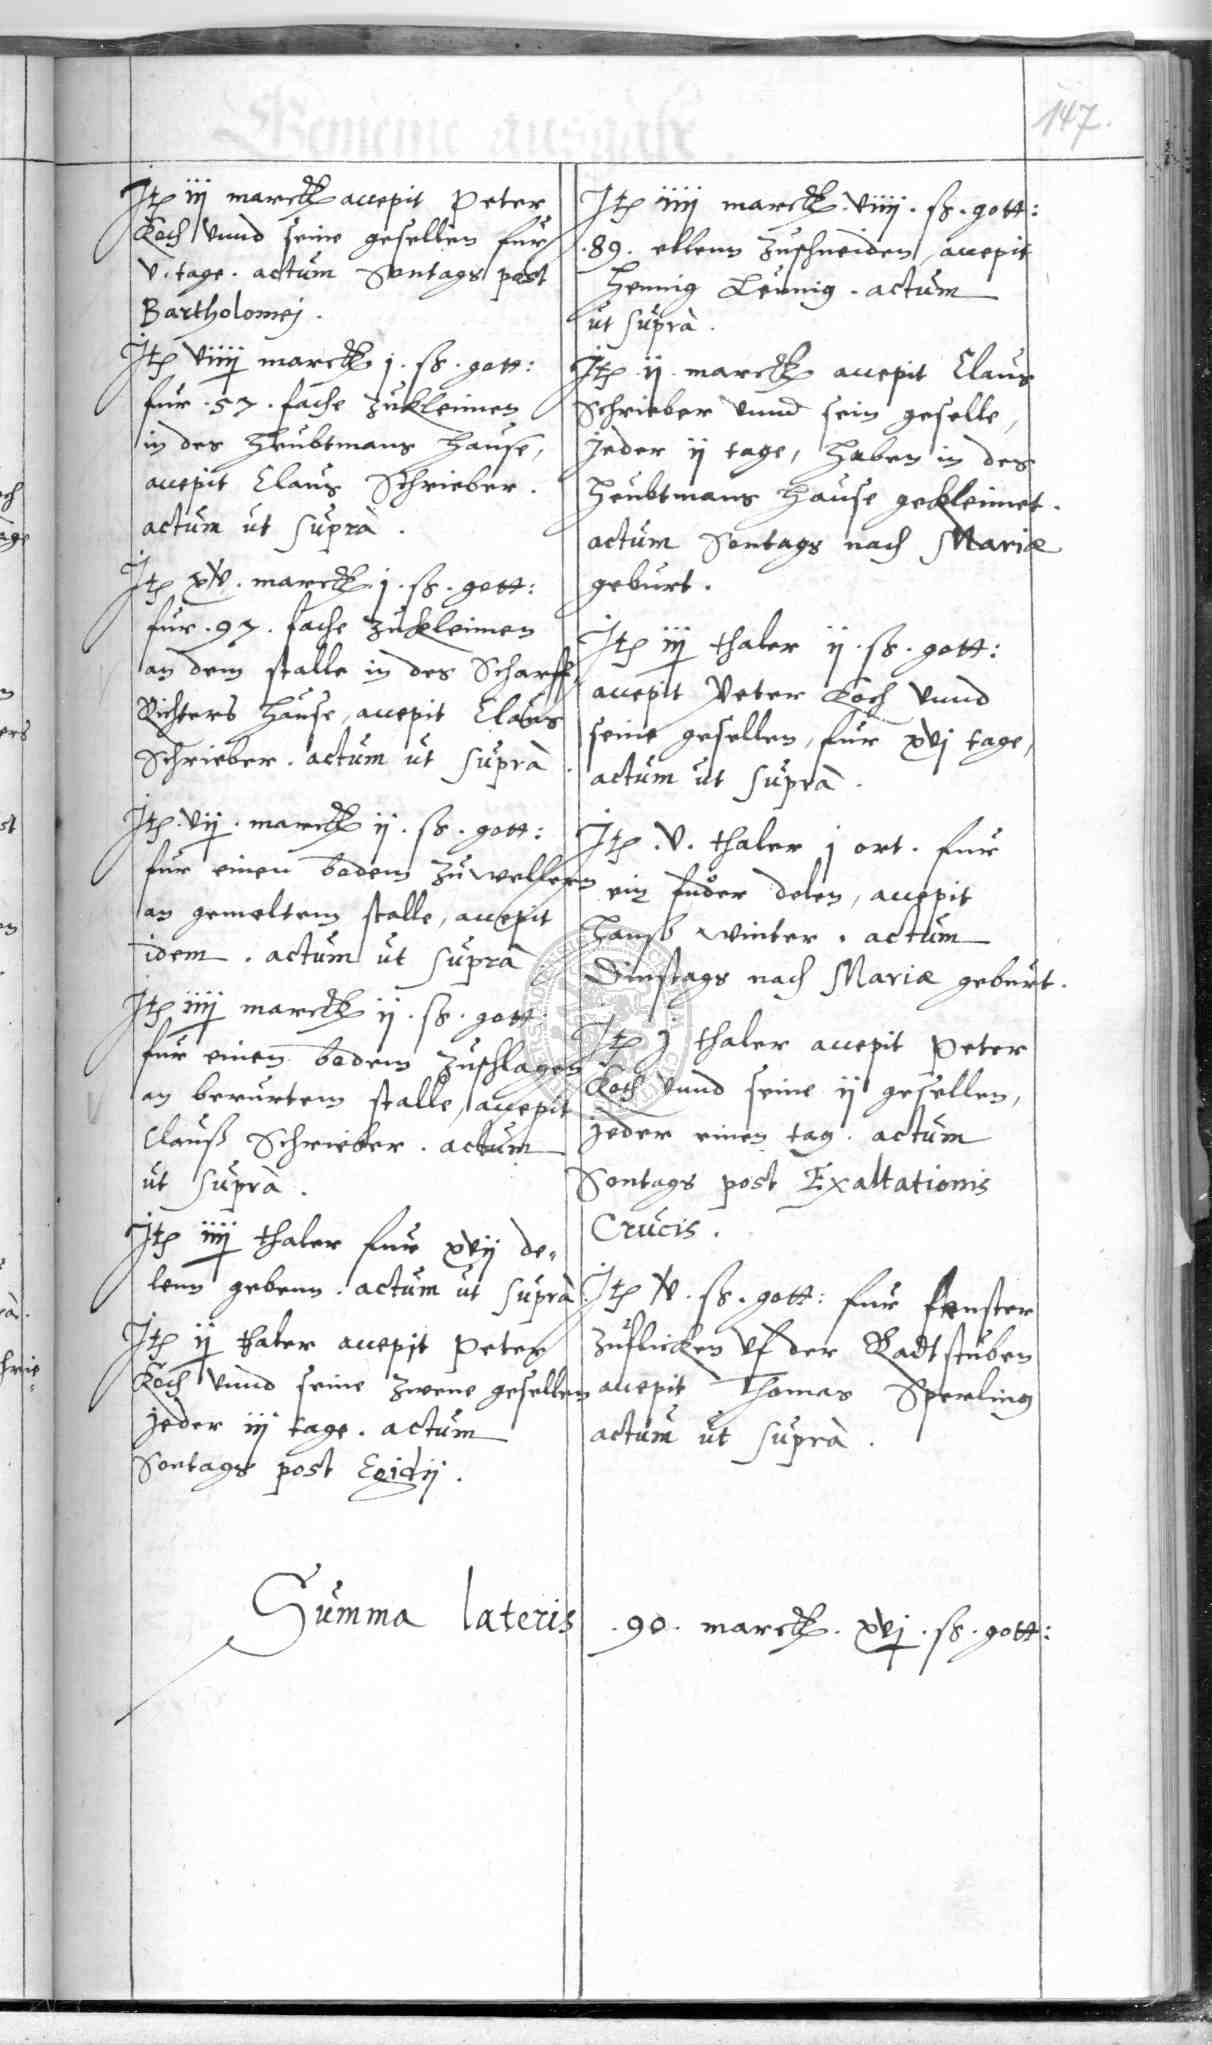 147.
Itp iij marck accepit Peter
Koch vnnd seine gesellen fur
v. tage. actum Sontags post
Bartholomej.
Itp viiij marck j. ss. gott:
fur .57. fache zukleimen
in des Heubtmans hause,
accepit Claus Schrieber.
actum ut suprà.
Itp xv. marck j. ss. gott:
fur .97. fache zukleimen
an dem stalle in des Scharff
Richters hause, accepit Claus
Schrieber. actum ut suprà.
Itp vij. marck ij. ss. gott:
fur einen bodem zuwellern
an gemeltem stalle, accepit
idem. actum ut suprà
Itp iiij marck ij. ss. gott
fur einen bodem zuschlagen
an berurtem stalle, accepit
Clauß Schrieber. actum
ut suprà.
Itp iiij thaler fur xvij de=
lenn gebenn. actum ut suprà.
Itp ij thaler accepit Peter
Koch vnnd seine zwene gesellen
jeder iij tage. actum
Sontags post Egidij.
Itp iiij marck. viiij. ss. gott:
.89. ellenn zuschneiden, accepit
Hennig Leunig. actum
ut suprà.
Itp ij. marck accepit Claus
Schrieber vnnd sein geselle,
jeder ij tage, haben in des
Heubtmans hause gekleimet.
actum Sontags nach Mariæ
geburt.
Itp iij thaler ij. ss. gott:
accepit Peter Koch vnnd
seine gesellen, fur xvj tage,
actum ut suprà.
Itp .v. thaler j ort. fur
ein fuder delen, accepit
Hanß Winter. actum
Dinstags nach Mariæ geburt.
Itp j thaler accepit Peter
Koch vnnd seine ij gesellen,
jeder einen tag. actum
Sontags post Exaltationis
Crucis.
Itp v. ss. gott: fur fenster
zuflicken vf der Badtstuben
accepit Thomas Sperling
actum ut suprà.
Summa lateris .90. marck. xvj. ss. gott: